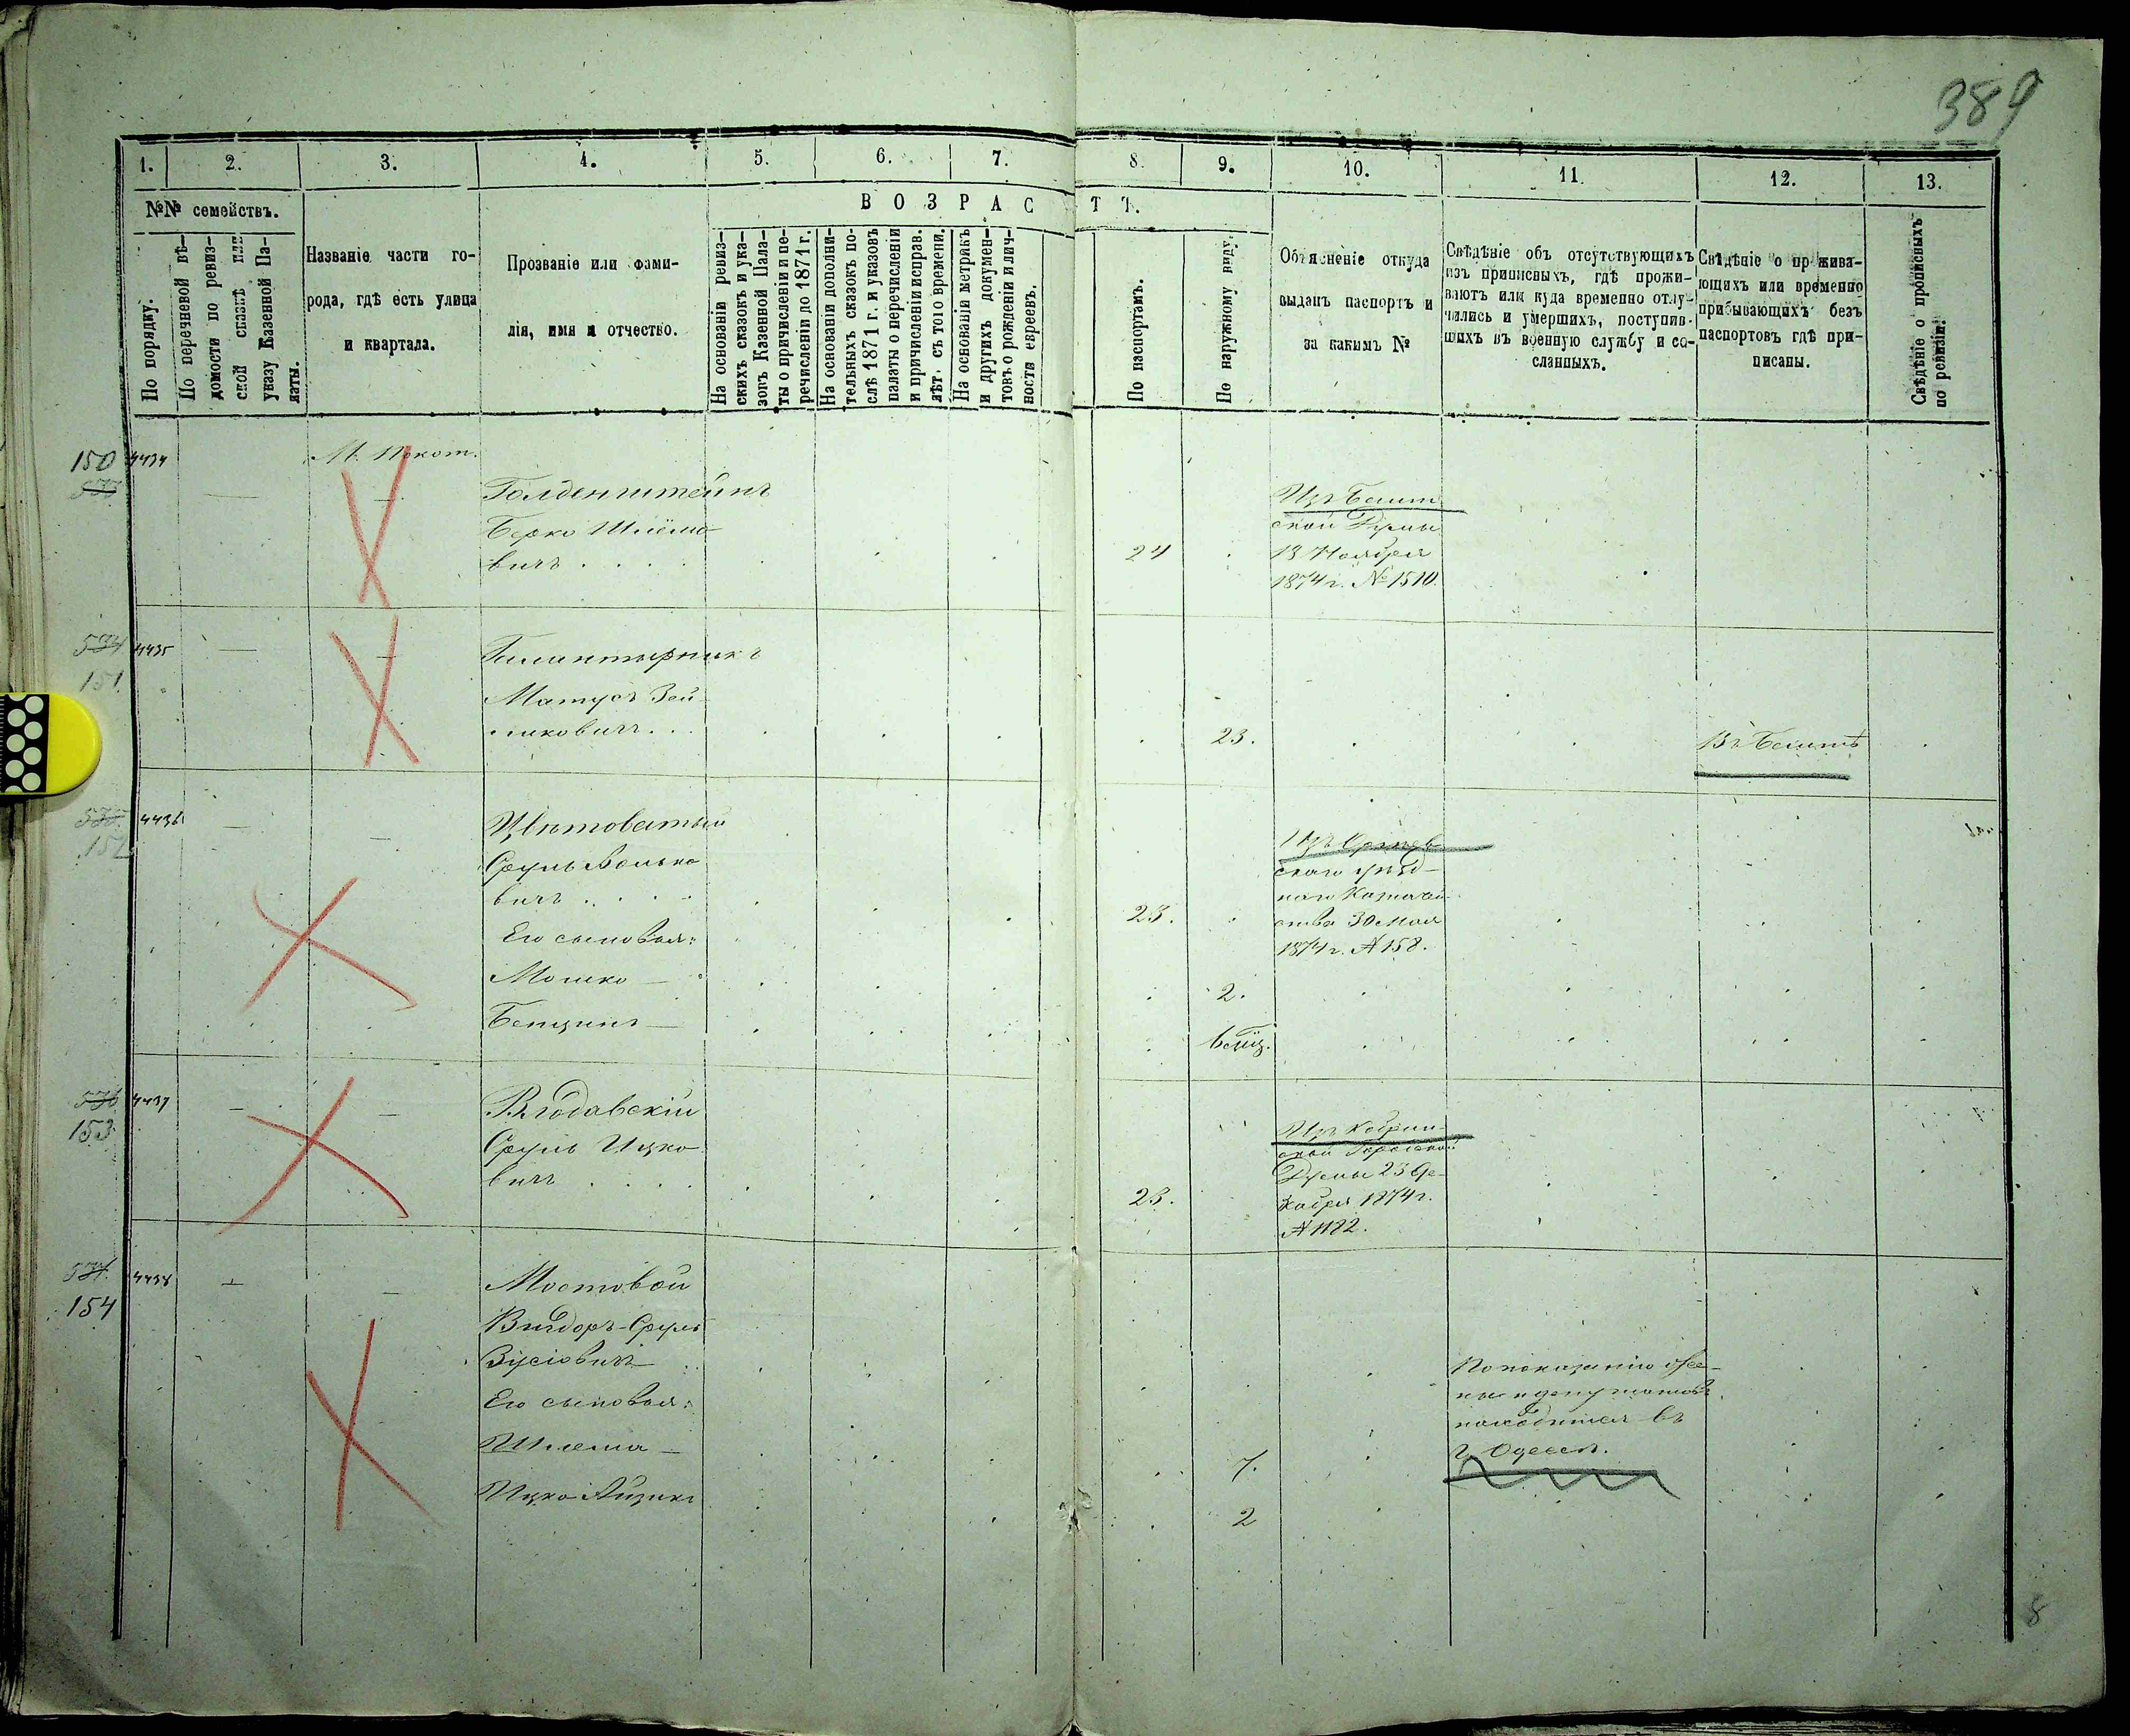 389
1. 2. 3. 4. 5. 6. 7. 8. 9. 10. 11. 12. 13.
№№ семействъ.
По порядку.
По перечневой вѣ-
домости по ревиз-
ской сказкѣ или
указу Казенной Па-
латы.
Названіе части го-
рода, гдѣ есть улица
и квартала.
Прозваніе или фами-
лія, имя и отчество.
ВОЗРАСТТ.
На основаніи ревиз-
скихъ сказокъ и ука-
зовъ Казенной Пала-
ты о причисленіи и пе-
речисленіи до 1871 г.
На основаніи дополни-
тельныхъ сказокъ по-
слѣ 1871 г. и указовъ
палаты о перечисленіи
и причисленіи исправ.
лѣт. съ того времени.
На основаніи метрикъ
и других докумен-
товъ о рожденіи и лич-
ности евреевъ.
По паспортамъ.
По наружному виду.
Объясненіе откуда
выданъ паспортъ и
за какимъ №
Свѣдѣніе объ отсутствующихъ
изъ приписныхъ, гдѣ прожи-
ваютъ или куда временно отлу-
чились и умершихъ, поступив-
шихъ въ военную службу и со-
сланныхъ.
Свѣдѣніе о прожива-
ющихъ или временно
прибывающихъ безъ
паспортовъ гдѣ при-
писаны.
Свѣдѣніе о прописныхъ
по ревизіи.
150 4434
М. Покот.
Голденштейнъ
Берко Шлёмо-
вичъ
24
Изъ
ской Думы
13 Ноября
1874 г. № 1510.
534 4435
151.
Матусъ Зей-
ликовичъ
23.
4436
152
Цвѣтоватый
Сруль Волько
вичъ
Его сыновья:
Мошко
Бенціинъ
23.
2.
скаго уѣзд-
наго Казначей-
ства 30 Мая
1874 г. № 158.
536 4437
153
Влодавскій
Сруль Ицко
вичъ
23.
Изъ Кобрин-
ской Городской
Думы 23 Де-
кабря 1874 г.
№ 1182.
537. 4438
154
Мостовой
Вигдоръ-Сруль
Зусіовичъ
Его сыновья:
Шлема
Ицко Айзикъ
7.
2
По показанію же-
ны и депутатовъ
находится въ
г. Одессѣ.
8